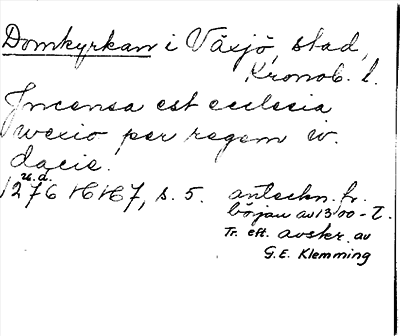 Domkyrkan i Växjö, stad,
Kronob. l.
Incensa est ecclesia
wexio per regem w.
dacie.
u.d.
1276 HH 7, s. 5. anteckn. fr.
början av 1300-t.
Tr. eft. avskr. av
G.E. Klemming